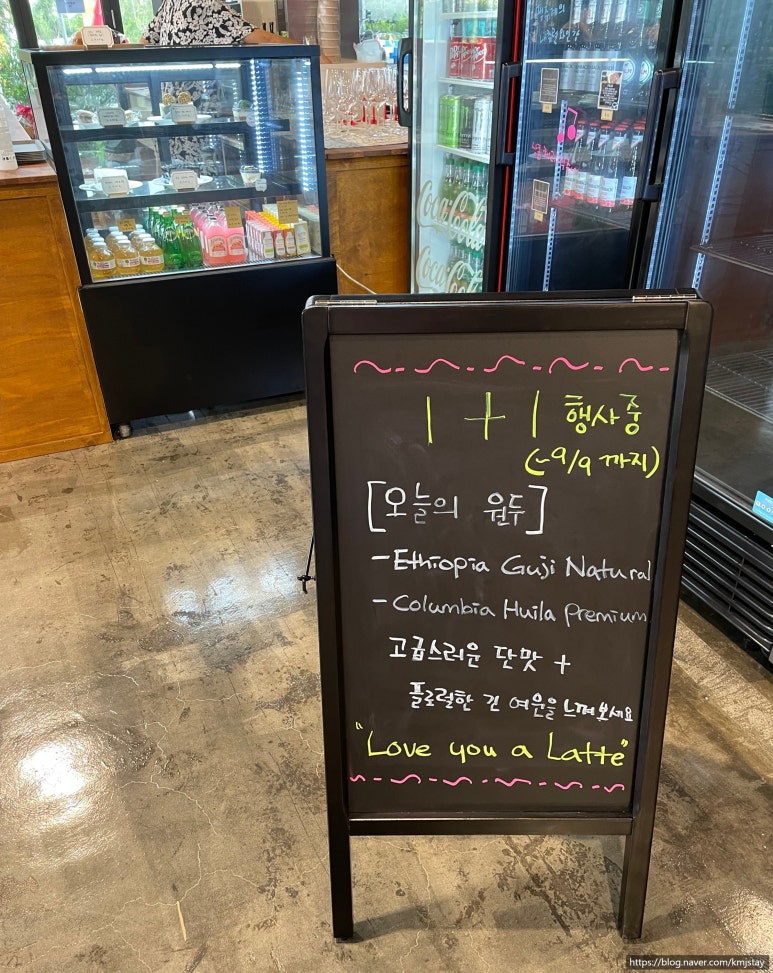 1 + 1 행사중
(~9/9 까지)
[오늘의 원두]
- Ethiopia Guji Natural
- Columbia Huila Premium
고급스러운 단맛 +
플로럴한 긴 여운을 느껴보세요
"Love you a Latte"
Coca-Cola
Coca-Cola
https://blog.naver.com/kmjstay